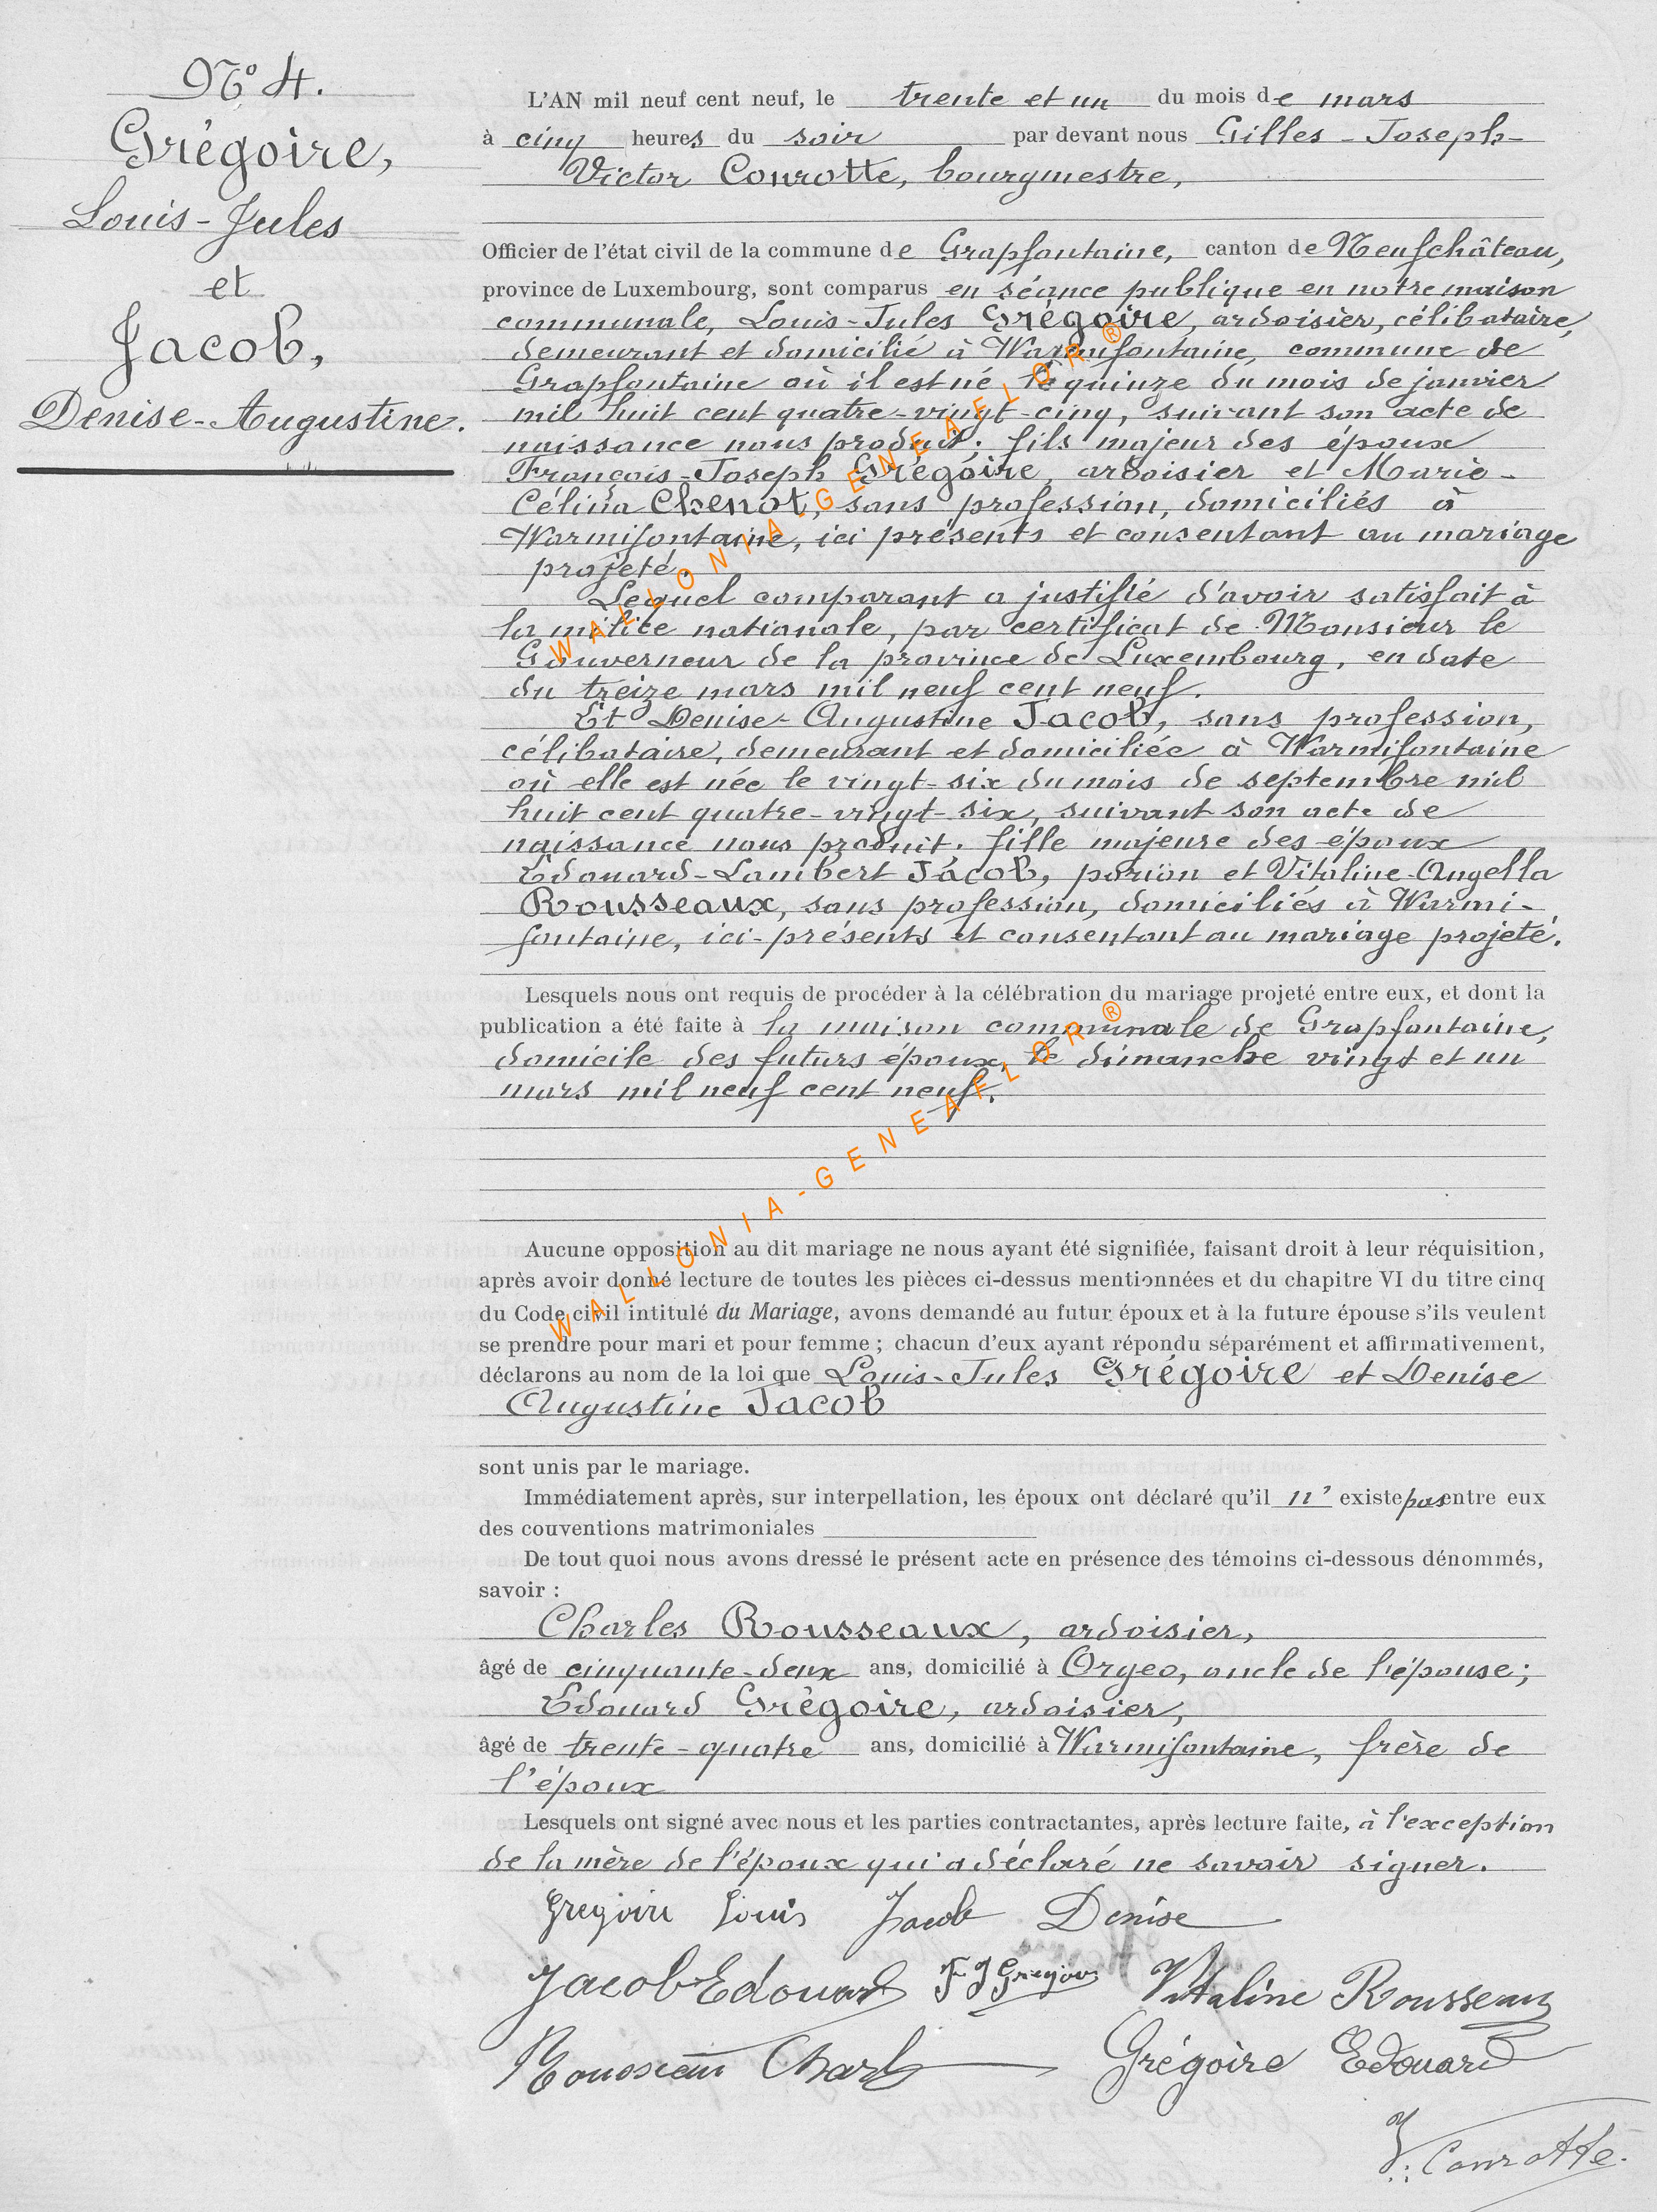 N° 4.
Grégoire,
Louis-Jules
et
Jacob,
Denise-Augustine.
L'AN mil neuf cent neuf, le trente et un du mois de mars
à cinq heures du soir par devant nous Gilles-Joseph-
Victor Conrotte, bourgmestre,
Officier de l'état civil de la commune de Grapfontaine, canton de Neufchâteau,
province de Luxembourg, sont comparus en séance publique en notre maison
communale, Louis-Jules Grégoire, ardoisier, célibataire,
demeurant et domicilié à Warmifontaine, commune de
Grapfontaine où il est né le quinze du mois de janvier
mil huit cent quatre-vingt-cinq, suivant son acte de
naissance nous produit; fils majeur des époux
François-Joseph Grégoire, ardoisier et Marie-
Célina Chenot, sans profession, domiciliés à
Warmifontaine, ici présents et consentant au mariage
projeté.
Lequel comparant a justifié d'avoir satisfait à
la milice nationale, par certificat de Monsieur le
Gouverneur de la province de Luxembourg, en date
du treize mars mil neuf cent neuf.
Et Denise-Augustine Jacob, sans profession,
célibataire, demeurant et domiciliée à Warmifontaine
où elle est née le vingt-six du mois de septembre mil
huit cent quatre-vingt-six, suivant son acte de
naissance nous produit. fille majeure des époux
Edouard-Lambert Jacob, porion et Vitaline-Angella
Rousseaux, sans profession, domiciliés à Warmi-
fontaine, ici-présents et consentant au mariage projeté.
Lesquels nous ont requis de procéder à la célébration du mariage projeté entre eux, et dont la
publication a été faite à la maison communale de Grapfontaine,
domicile des futurs époux, le dimanche vingt et un
mars mil neuf cent neuf.
Aucune opposition au dit mariage ne nous ayant été signifiée, faisant droit à leur réquisition,
après avoir donné lecture de toutes les pièces ci-dessus mentionnées et du chapitre VI du titre cinq
du Code civil intitulé du Mariage, avons demandé au futur époux et à la future épouse s'ils veulent
se prendre pour mari et pour femme ; chacun d'eux ayant répondu séparément et affirmativement,
déclarons au nom de la loi que Louis-Jules Grégoire et Denise
Augustine Jacob
sont unis par le mariage.
Immédiatement après, sur interpellation, les époux ont déclaré qu'il n' existe pas entre eux
des conventions matrimoniales
De tout quoi nous avons dressé le présent acte en présence des témoins ci-dessous dénommés,
savoir :
Charles Rousseaux, ardoisier,
âgé de cinquante-deux ans, domicilié à Orgeo, oncle de l'épouse;
Edouard Grégoire, ardoisier,
âgé de trente-quatre ans, domicilié à Warmifontaine, frère de
l'époux
Lesquels ont signé avec nous et les parties contractantes, après lecture faite, à l'exception
de la mère de l'époux qui a déclaré ne savoir signer.
Gregoire Louis Jacob Denise
Jacob Edouard F J Gregoire Vitaline Rousseaux
Rousseaux Charles Grégoire Edouard
V. Conrotte.
WALLONIA-GENEAFLOR®
WALLONIA-GENEAFLOR®